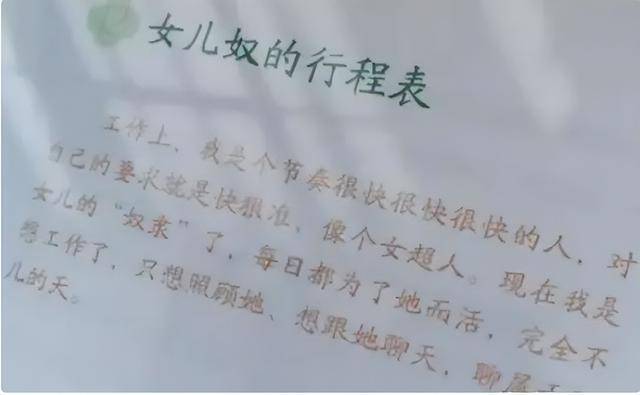 女儿奴的行程表
工作上，我是个节奏很快很快很快的人，对
自己的要求就是快狠准，像个女超人。现在我是
女儿的“奴隶”了，每日都为了她而活，完全不
想工作了，只想照顾她、想跟她聊天，聊属于
儿的天。